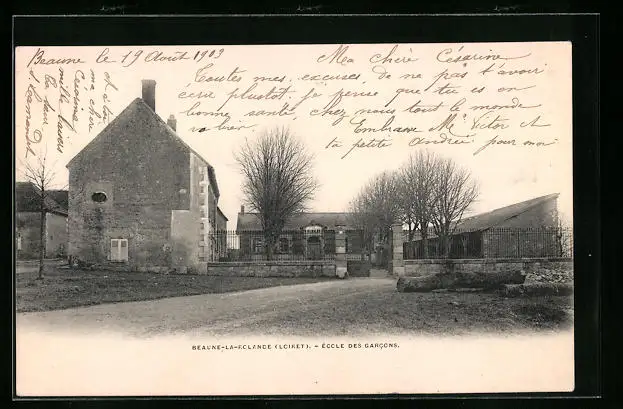 Beaune le 19 Août 1903
Ma chère Césarine
Toutes mes excuses de ne pas t'avoir
écrie plustot. je pense que tu es en
bonne santé, chez nous tout le monde
Embrasse Mr Victor et
ta petite Andrée pour moi
à toi
ma chère
Césarine
mille baisers
ta sœur
BEAUNE-LA-ROLANDE (LOIRET). - ÉCOLE DES GARÇONS.